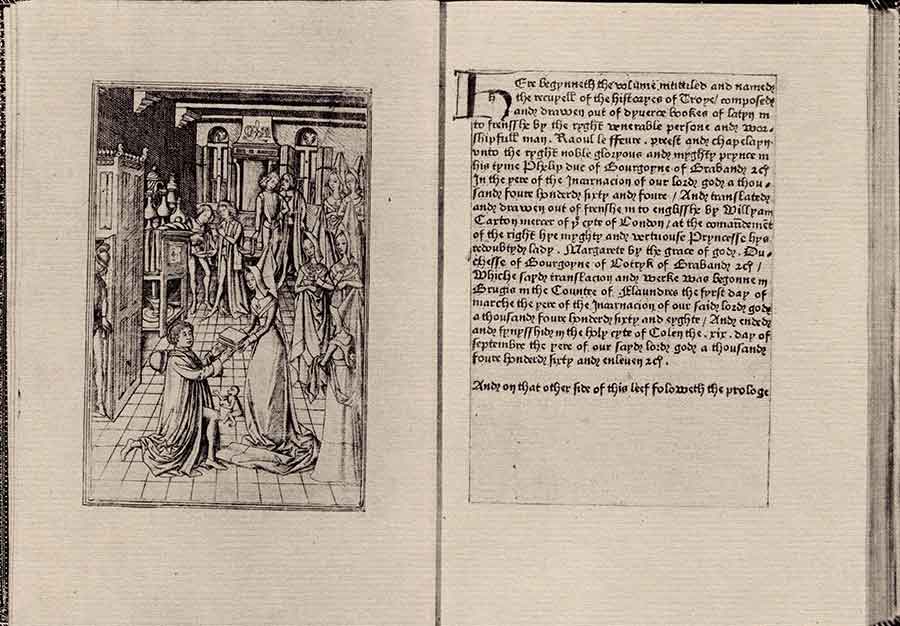 HEre begynneth the volume intituled and named
the recuyell of the historyes of Troye / composed
and drawen out of dyuerce bookes of latyn in
to frensshe by the ryght venerable persone and wor-
shipfull man . Raoul le ffeure . preest and chapelayn
vnto the ryght noble gloryous and myghty prynce in
his tyme Phelip duc of Bourgoyne of Braband &c
In the yere of the Incarnacion of our lord god a thou-
sand foure honderd sixty and foure / And translated
and drawen out of frenshe in to englisshe by Willyam
Caxton mercer of yͤ cyte of London / at the comaūdemēt
of the right hye myghty and vertuouse Pryncesse hys
redoubtyd lady . Margarete by the grace of god . Du-
chesse of Bourgoyne of Lotryk of Braband &c /
Whiche sayd translacion and werke was begonne in
Brugis in the Countre of Flaundres the fyrst day of
marche the yere of the Incarnacion of our said lord god
a thousand foure honderd sixty and eyghte / And ended
and fynysshid in the holy cyte of Colen the . xix . day of
septembre the yere of our sayd lord god a thousand
foure honderd sixty and enleuen &c .
And on that other side of this leef foloweth the prologe